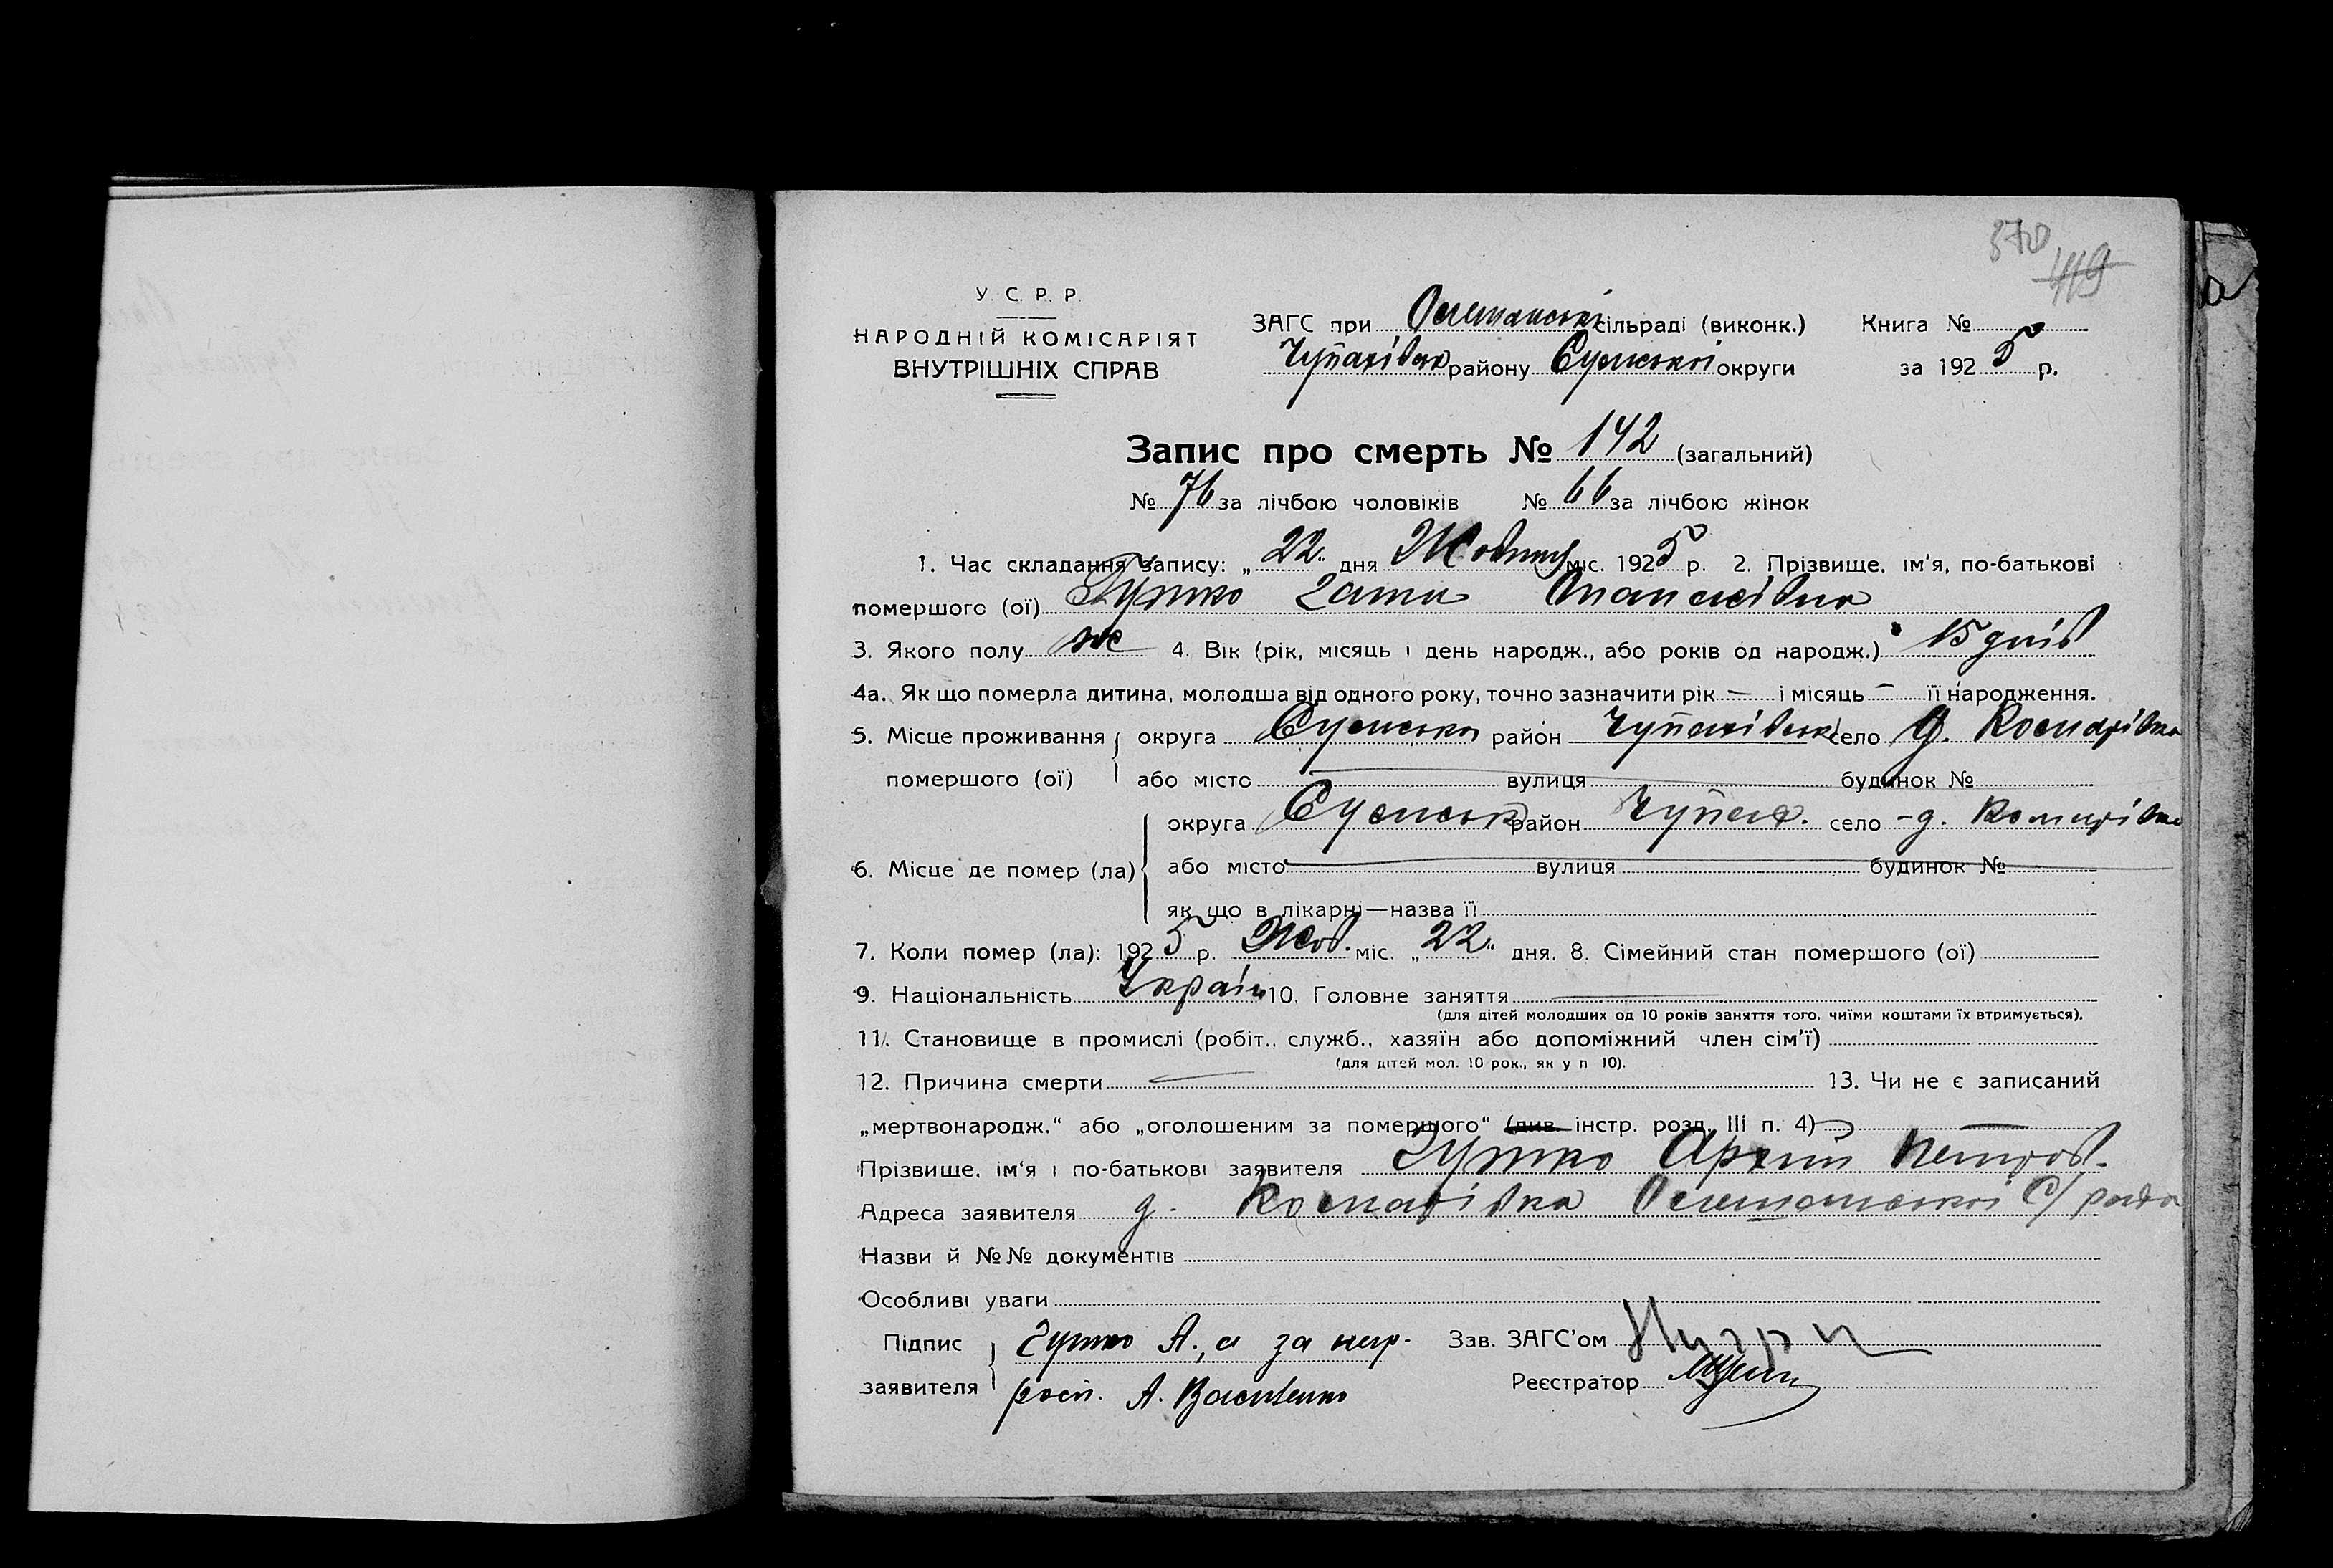 370
419
У. С. Р. Р.
НАРОДНІЙ КОМІСАРІЯТ
ВНУТРІШНІХ СПРАВ
ЗАГС при сільраді (виконк.) Книга №
району Сумської округи за 1925 р.
Запис про смерть № 142 (загальний)
№ 76 за лічбою чоловіків № 66 за лічбою жінок
1. Час складання запису: „22" дня Жовтня міс. 1925 р. 2. Прізвище, ім'я, по-батькові
помершого (ої) Гутко
3. Якого полу же 4. Вік (рік, місяць і день народж., або років од народж.) 15 днів
4а. Як що померла дитина, молодша від одного року, точно зазначити рік — і місяць — її народження.
5. Місце проживання округа Сумська район село
помершого (ої) або місто вулиця будинок №
округа Сумськ район село
6. Місце де помер (ла) або місто вулиця будинок №
як що в лікарні—назва її
7. Коли помер (ла): 1925 р. Жов. міс. „22" дня. 8. Сімейний стан помершого (ої)
9. Національність Україн 10. Головне заняття
(для дітей молодших од 10 років заняття того, чиїми коштами їх втримується).
11. Становище в промислі (робіт., служб., хазяїн або допоміжний член сім'ї)
(для дітей мол. 10 рок., як у п 10).
12. Причина смерти — 13. Чи не є записаний
„мертвонародж." або „оголошеним за помершого" (див. інстр. розд. III п. 4)
Прізвище, ім'я і по-батькові заявителя Гутко Архип Петров.
Адреса заявителя д. Комарівка С/ рада
Назви й №№ документів
Особливі уваги
Підпис Гутко А., а за Зав. ЗАГС'ом
заявителя А. Василенко Реєстратор